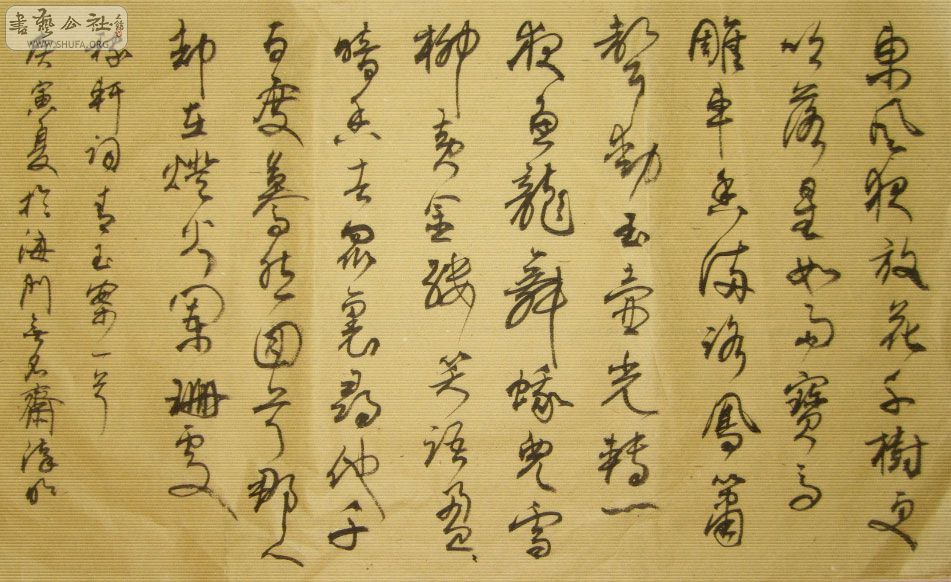 東風夜放花千樹更
吹落星如雨寶馬
雕車香滿路鳳簫
聲動玉壺光轉一
夜魚龍舞蛾兒雪
柳黃金縷笑語盈〻
暗香去眾裏尋他千
百度驀然回首那人
却在燈火闌珊處
稼軒詞青玉案一首
庚寅夏於海門無名齋
書藝公社
WWW.SHUFA.ORG